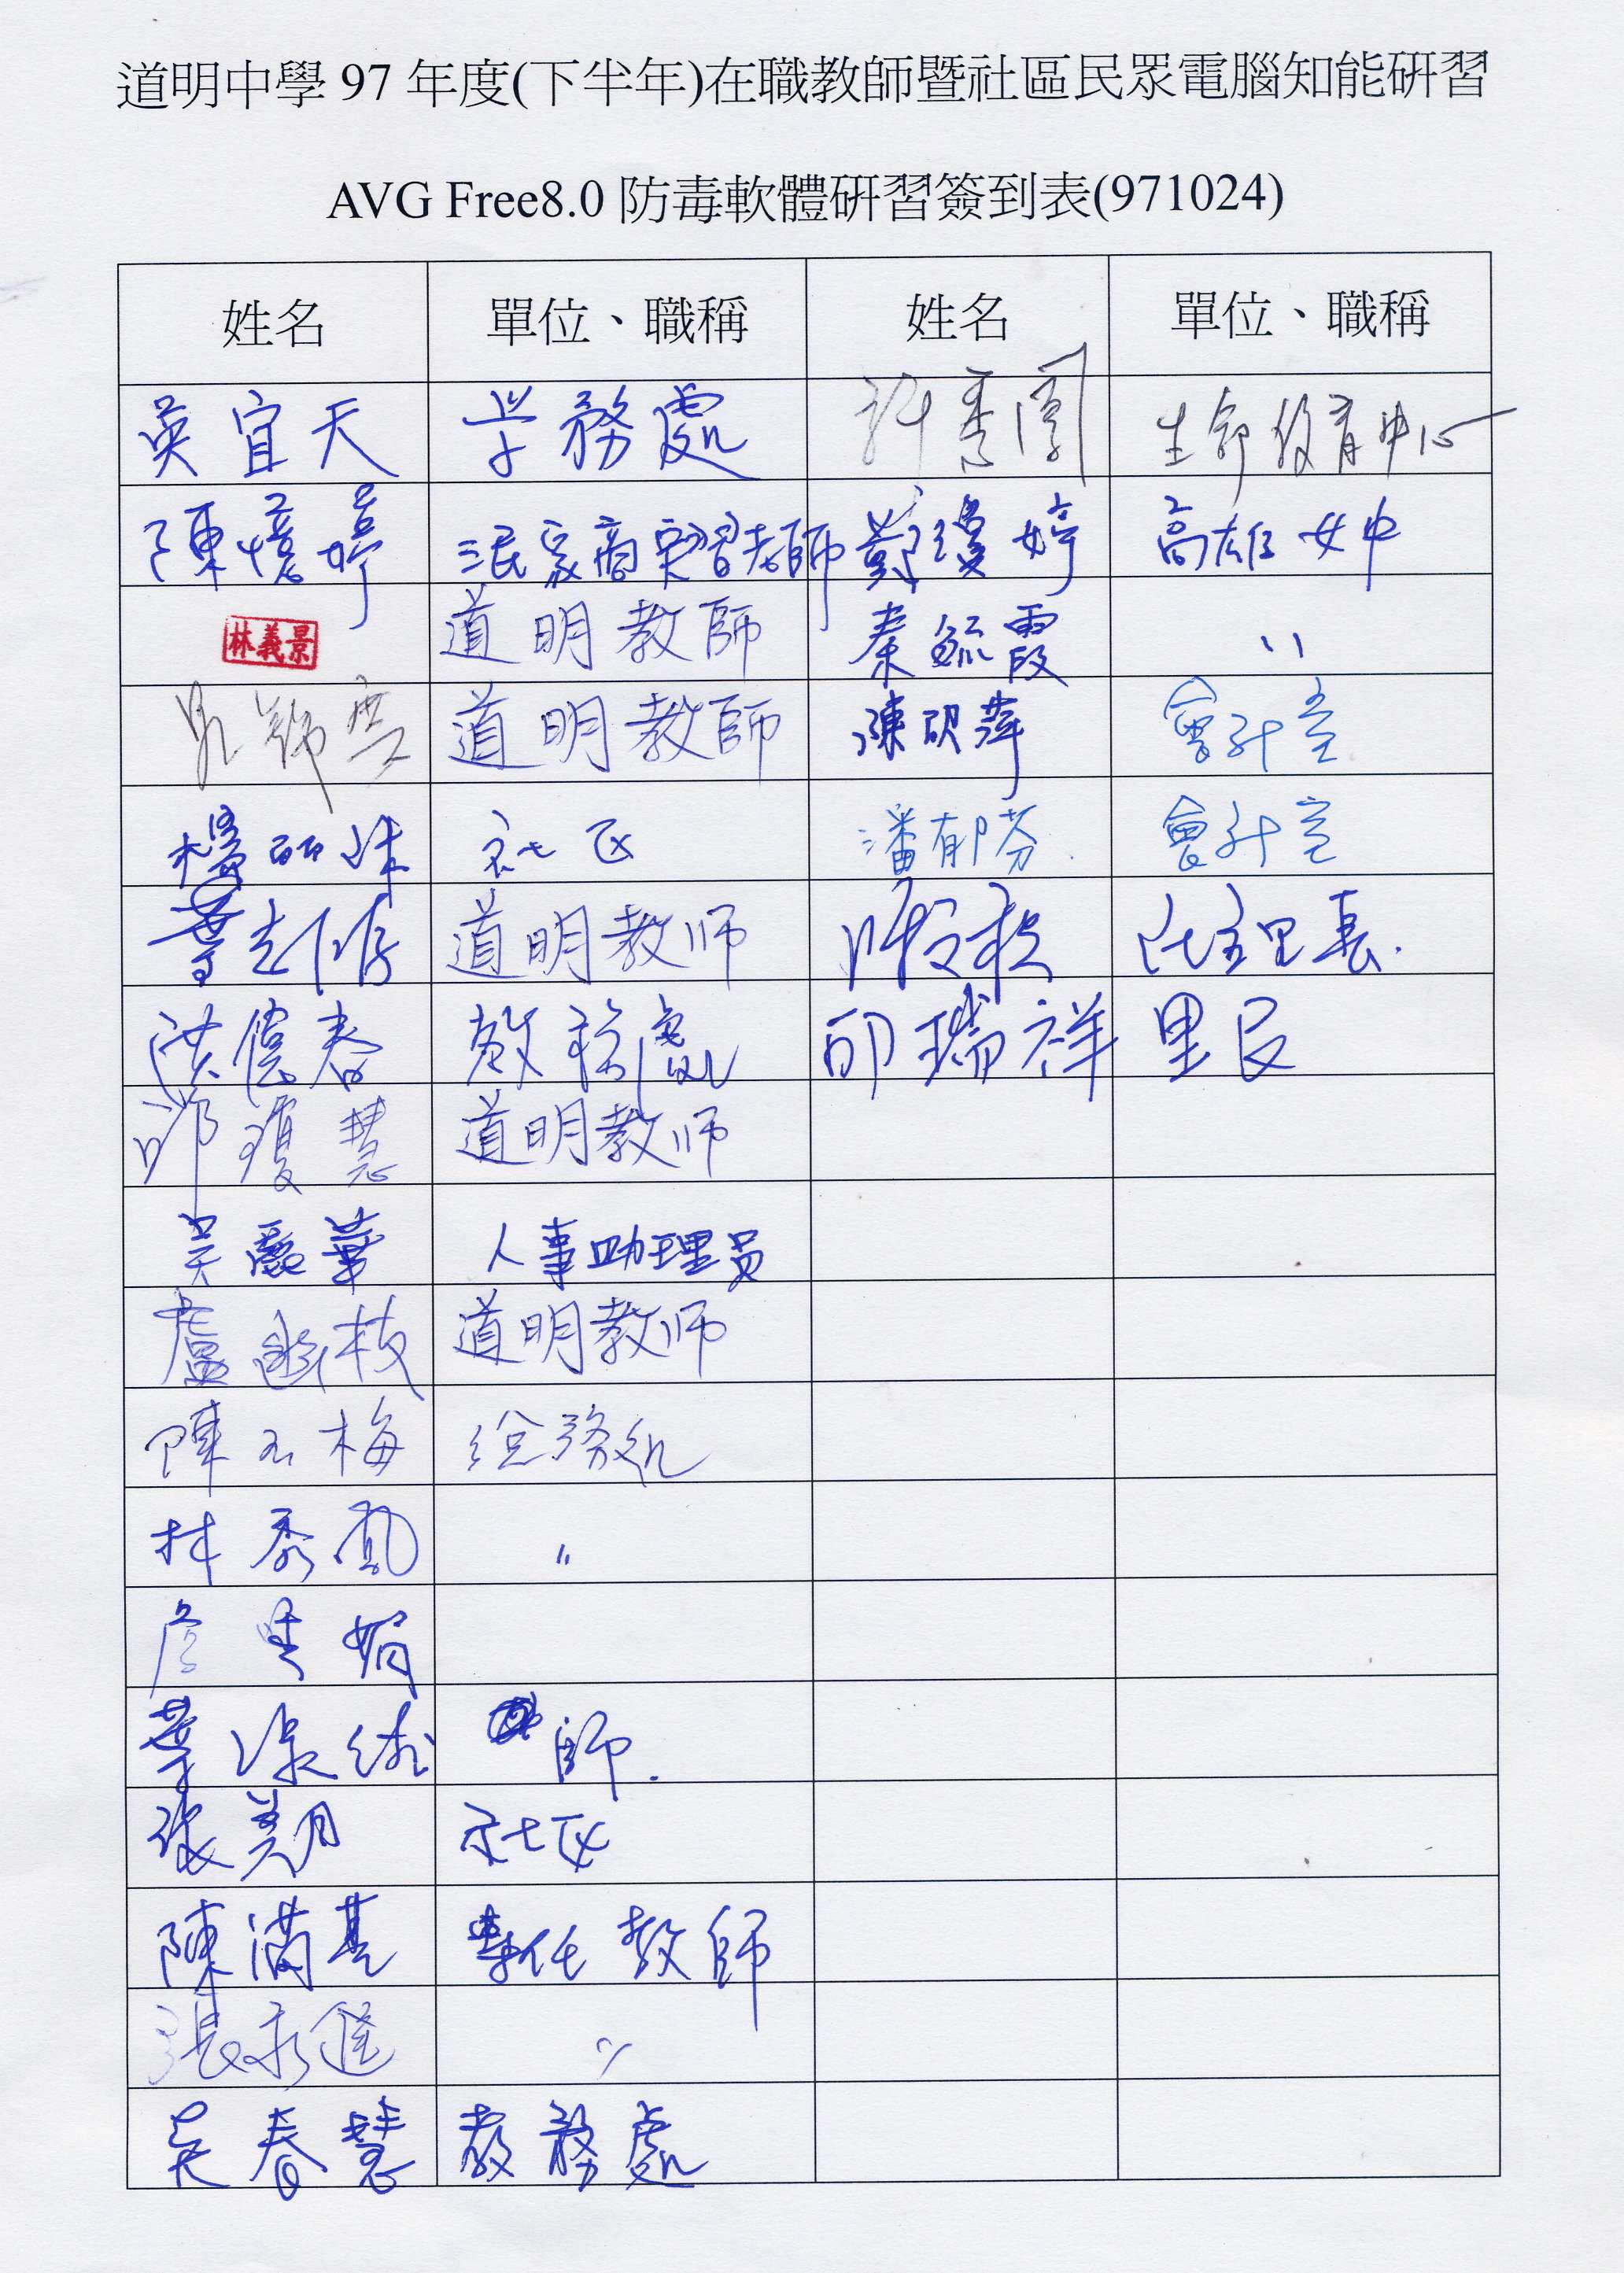 道明中學 97 年度(下半年)在職教師暨社區民眾電腦知能研習
AVG Free8.0 防毒軟體研習簽到表(971024)
姓名 單位、職稱 姓名 單位、職稱
吳宜天 学務處 許秀園 生命教育中心
陳憶婷 三民家商實習老師 鄭瓊婷 高雄女中
林義景 道明教師 秦毓霞 〃
道明教師 陳硯萍 會計室
楊 社区 潘郁芬 會計室
葉 道明教师 里長.
洪億春 教務處 邱瑞祥 里民
邱瓊慧 道明教师
吳麗華 人事助理員
盧 枝 道明教师
陳 梅 總務処
林秀鳳 〃
詹 娟
葉淑 師.
張翔 社区
陳滿基 專任教師
張永進 〃
吳春慧 教務處